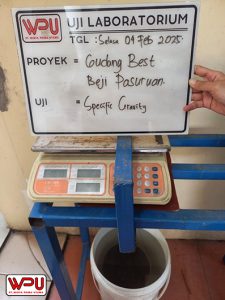 WPU
UJI LABORATORIUM
TGL : Selasa 04 Feb 2025
PROYEK = Gudang Best
Beji Pasuruan
UJI = Specific Gravity
WPU